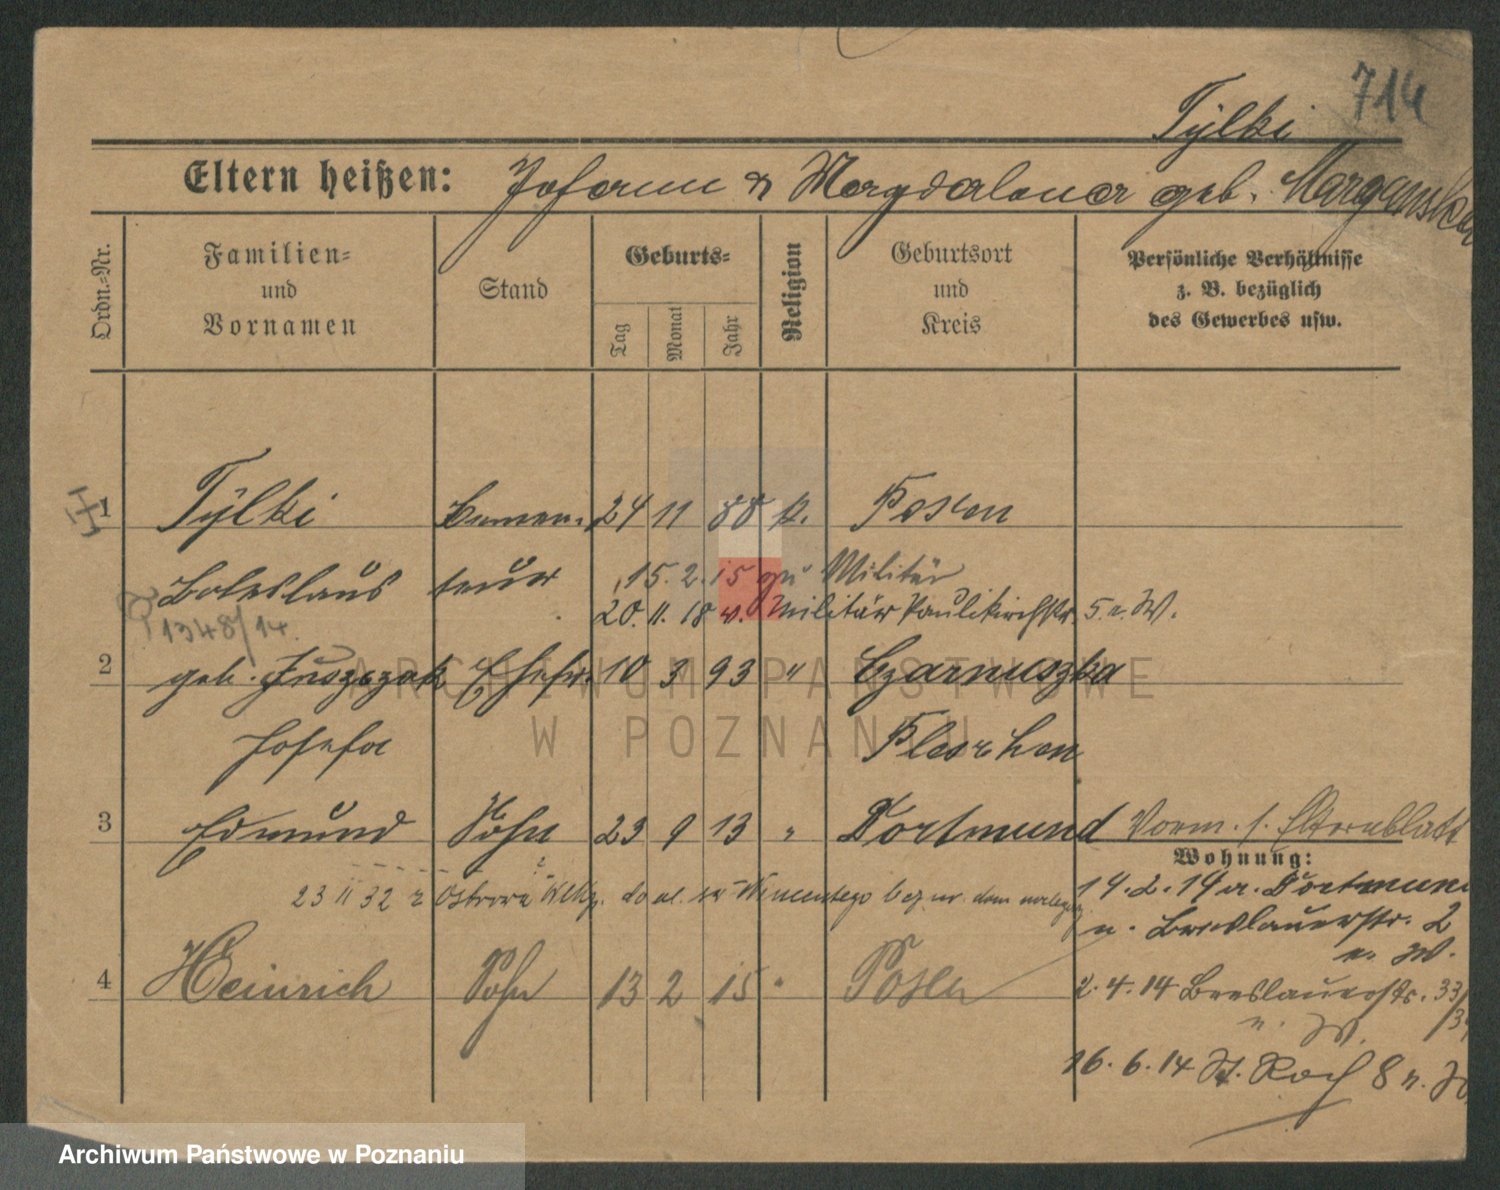 714
Tÿlki
Eltern heißen: Johann & Magdalena geb. Marganska
Ordn.-Nr.
Familien-
und
Vornamen
Stand
Geburts-
Tag
Monat
Jahr
Religion
Geburtsort
und
Kreis
Persönliche Verhältnisse
z. B. bezüglich
des Gewerbes usw.
1 Tÿlki 24 11 88 k. Posen
Boleslaus
15.2.15 zu Militär
20.11.18 v. Militär Paulikirchstr. 5. n. W.
1348/14.
2 geb. Juszczak Ehefr. 10 3 93 " Czarnuszka
Josefa Pleschen
3 Edmund Sohn 23 9 13 " Dortmund Vorm. s. Elternblatt
Wohnung:
23 11 32 z Ostrowa Wlkp. do ul. św Wincentego
14.2.14 a. Dortmund
n. Breslauerstr. 2
n. W.
4 Heinrich Sohn 13 2 15 " Posen
2.4.14 Breslauerstr. 33/34
n. W.
16.6.14 St. Roch 8 n. W.
ARCHIWUM PAŃSTWOWE
W POZNANIU
Archiwum Państwowe w Poznaniu